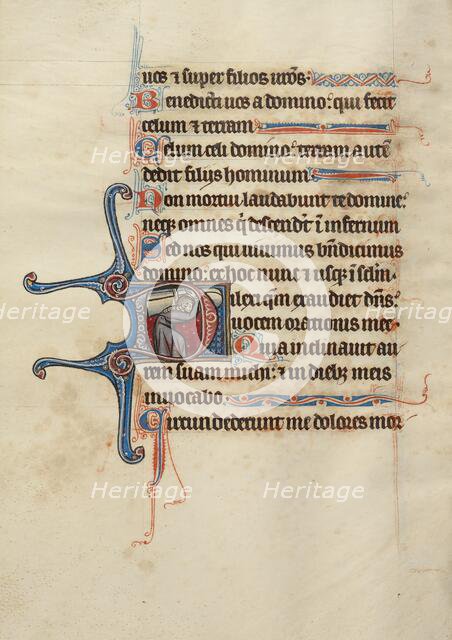 uos ⁊ super filios ur̄os:
Benedicti uos a domino: qui fecit
celum ⁊ terram
Celum celi domino: terram autē
dedit filiis hominum:
Non mortui laudabunt te domine:
neqꝫ omnes q̇ descendūt ī infernum
Sed nos qui uiuimus bn̄dicimus
domino: ex hoc nunc ⁊ usqꝫ ī sc̄lm·
Dilexi qm̄ exaudiet dn̄s:
uocem orationis mee
Quia inclinauit au
rem suam michi: ⁊ in diebꝫ meis
inuocabo.
Circundederunt me dolores mor
Heritage
Heritage
Heritage
Heritage
Heritage
Heritage
Heritage
Heritage